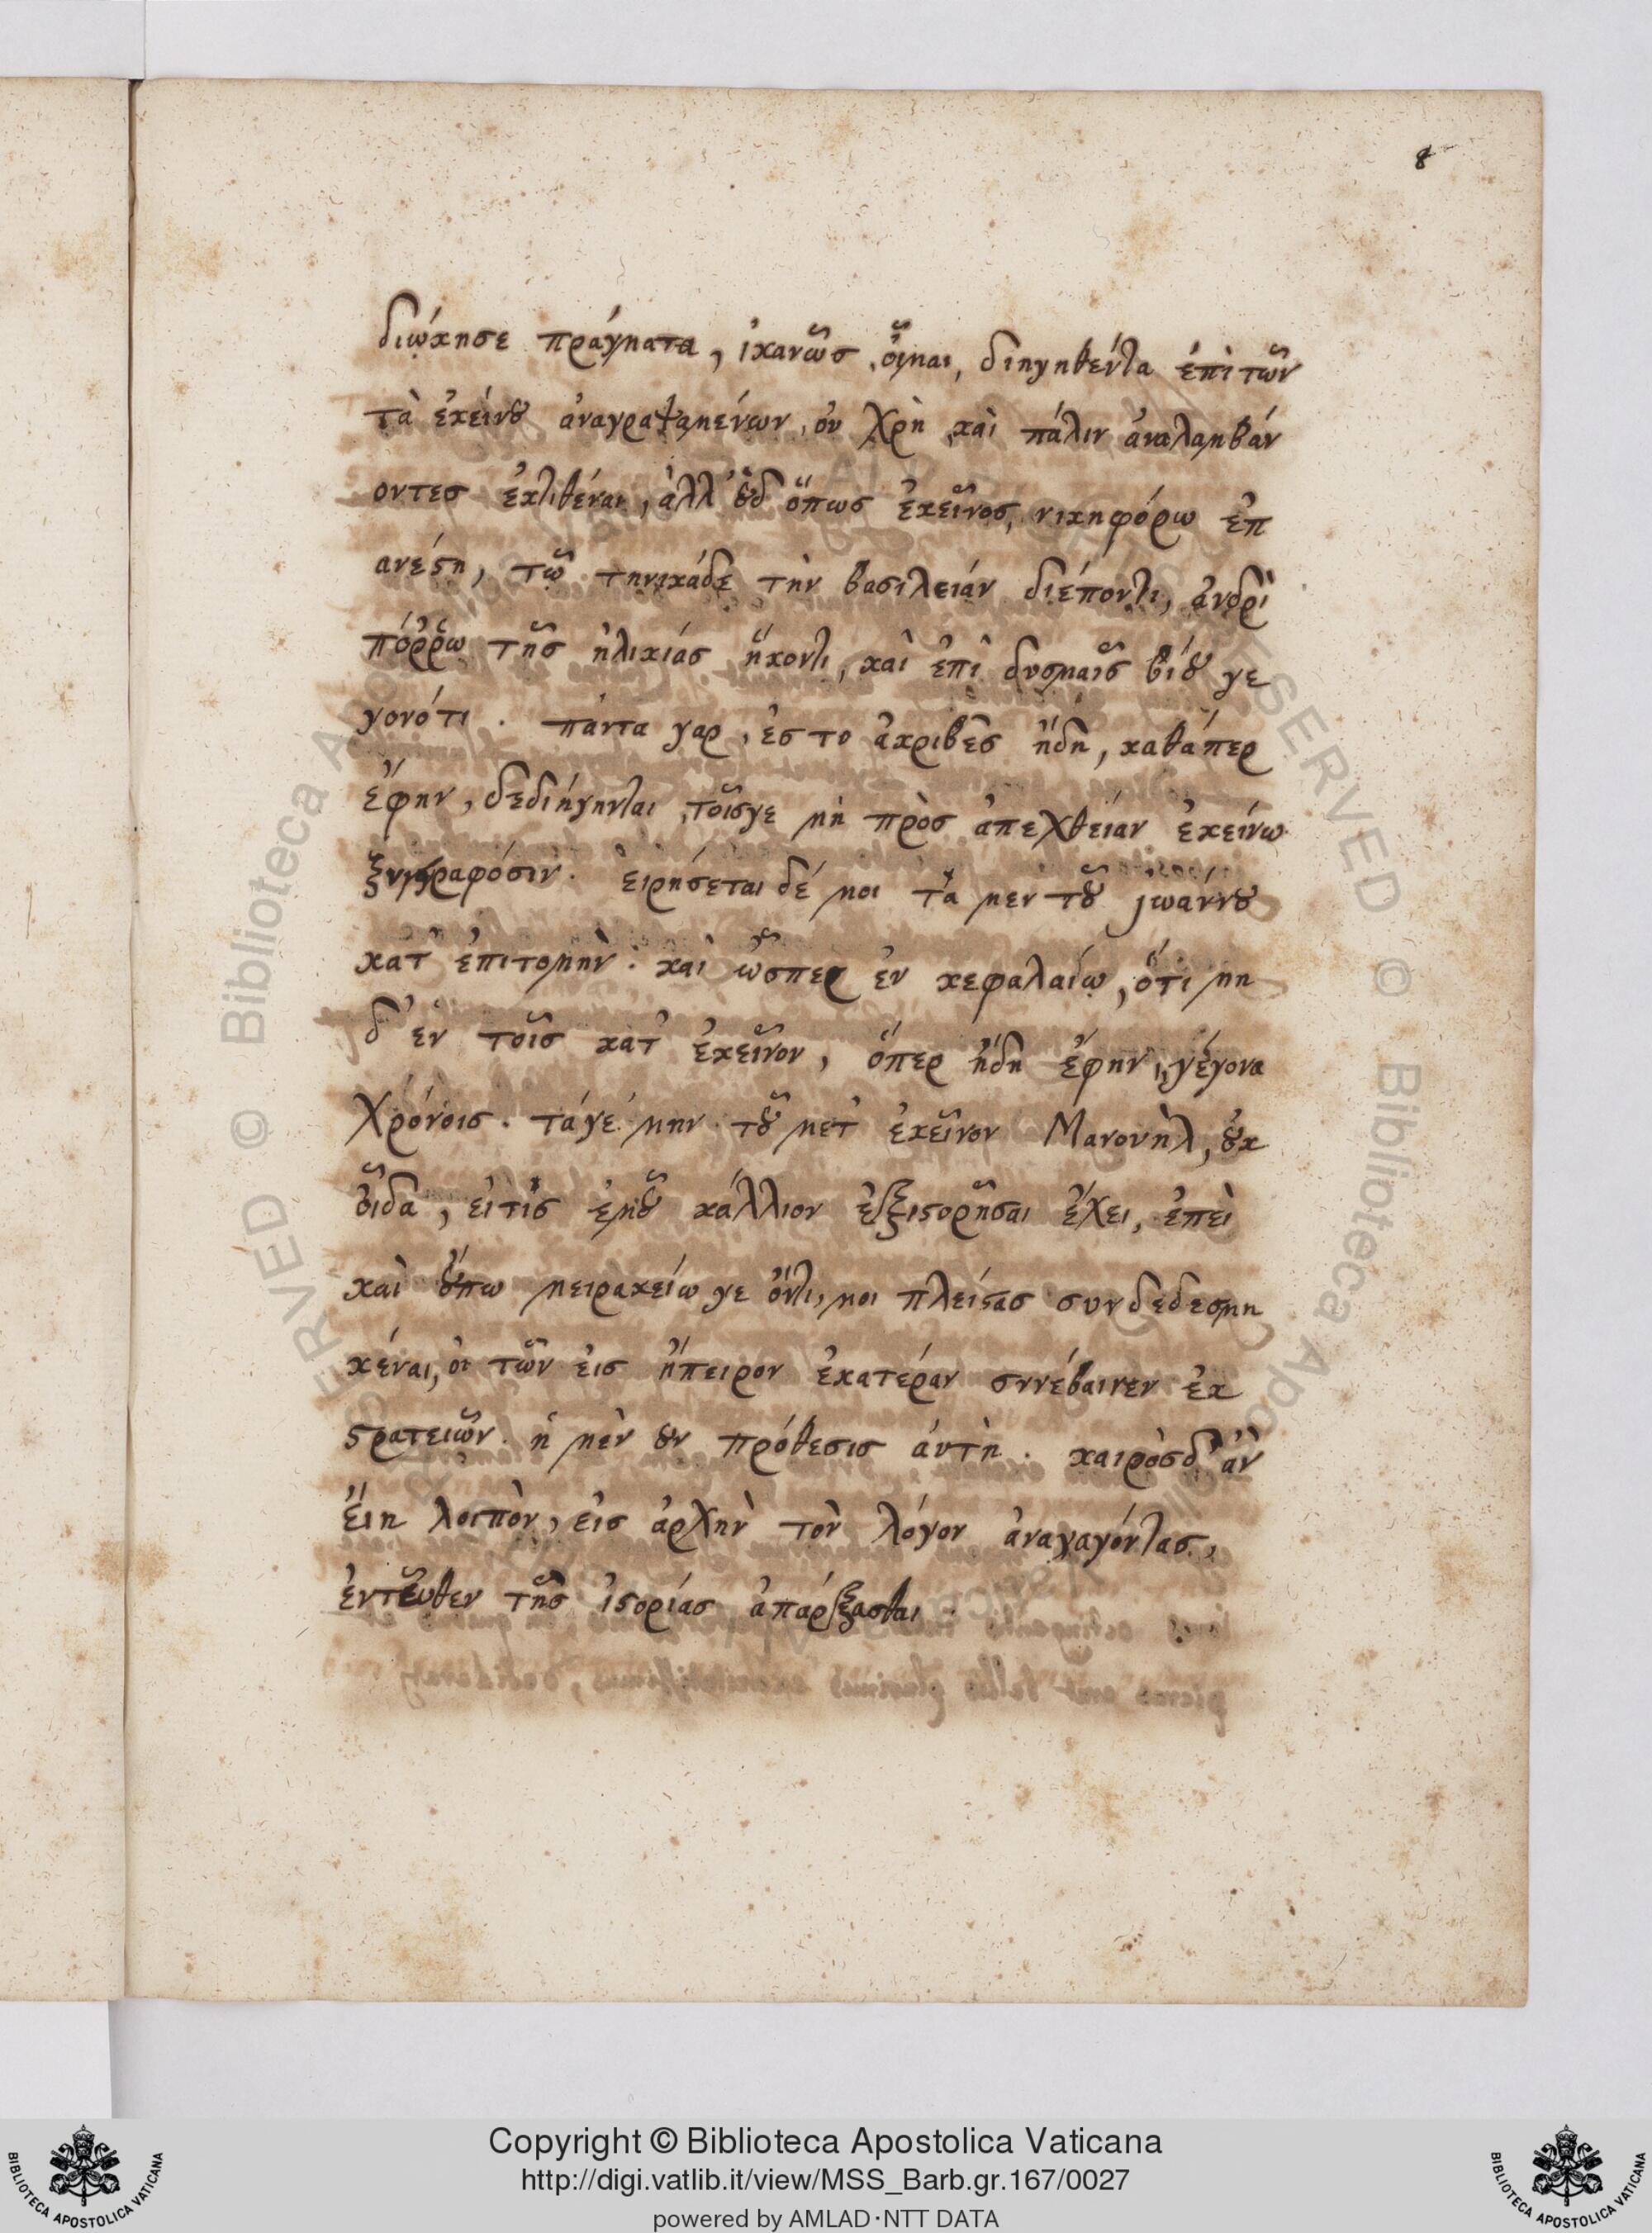 8
διῴκησε πράγματα, ἱκανῶς οἶμαι, διηγηθέντα ἐπὶ τῶν
τὰ ἐκείνου ἀναγραψαμένων, ὀυ χρὴ καὶ πάλιν ἀναλαμβάν
οντες ἐκτιθέναι, ἀλλ' ουδ ὅπως ἐκεῖνος, νικηφόρω ἐπ
ανέστη, τῶ τηνικάδε τὴν βασιλειάν διέποντι, ἀνδρὶ
πόῤῥω τῆς ἡλικίας ἥκοντι, καὶ ἐπὶ δυσμαῖς βίου γε
γονότι. πάντα γαρ, ἐς το ἀκριβὲς ἤδη, καθάπερ
ἔφην, δεδιήγηνται, τοῖσγε μὴ πρὸς ἀπεχθείαν ἐκείνω
ξυγγραφόσιν. ἐιρήσεται δέ μοι τὰ μεν τοῦ ϳωάννου
κατ' ἐπιτομὴν. καὶ ὥσπερ ἐν κεφαλαίῳ, ὅτι μη
δ' ἐν τοῖς κατ' ἐκεῖνον, ὅπερ ἤδη ἔφην, γέγονα
χρόνοις. τάγε μην τοῦ μετ' ἐκεῖνον Μανουὴλ, ουκ
οἶδα, ἐιτὶς ἐμοῦ κάλλιον ἐξιστορῆσαι ἔχει, ἐπεὶ
καὶ ούπω μειρακείω γε ὄντι, μοι πλείστας συνδεδεσμη
κέναι, ὁι τῶν ἐις ἤπειρον ἑκατέραν συνέβαινεν ἐκ
στρατειῶν. ἡ μὲν ουν πρόθεσις ἁυτὴ. καιρὸσδ' ἀν
ἔιη λοιπὸν, ἐις ἀρχὴν τὸν λόγον ἀναγαγόντας,
ἐντεῦθεν τῆς ἱστορίας ἀπάρξασθαι.
Copyright © Biblioteca Apostolica Vaticana
http://digi.vatlib.it/view/MSS_Barb.gr.167/0027
powered by AMLAD·NTT DATA
BIBLIOTECA APOSTOLICA VATICANA
BIBLIOTECA APOSTOLICA VATICANA